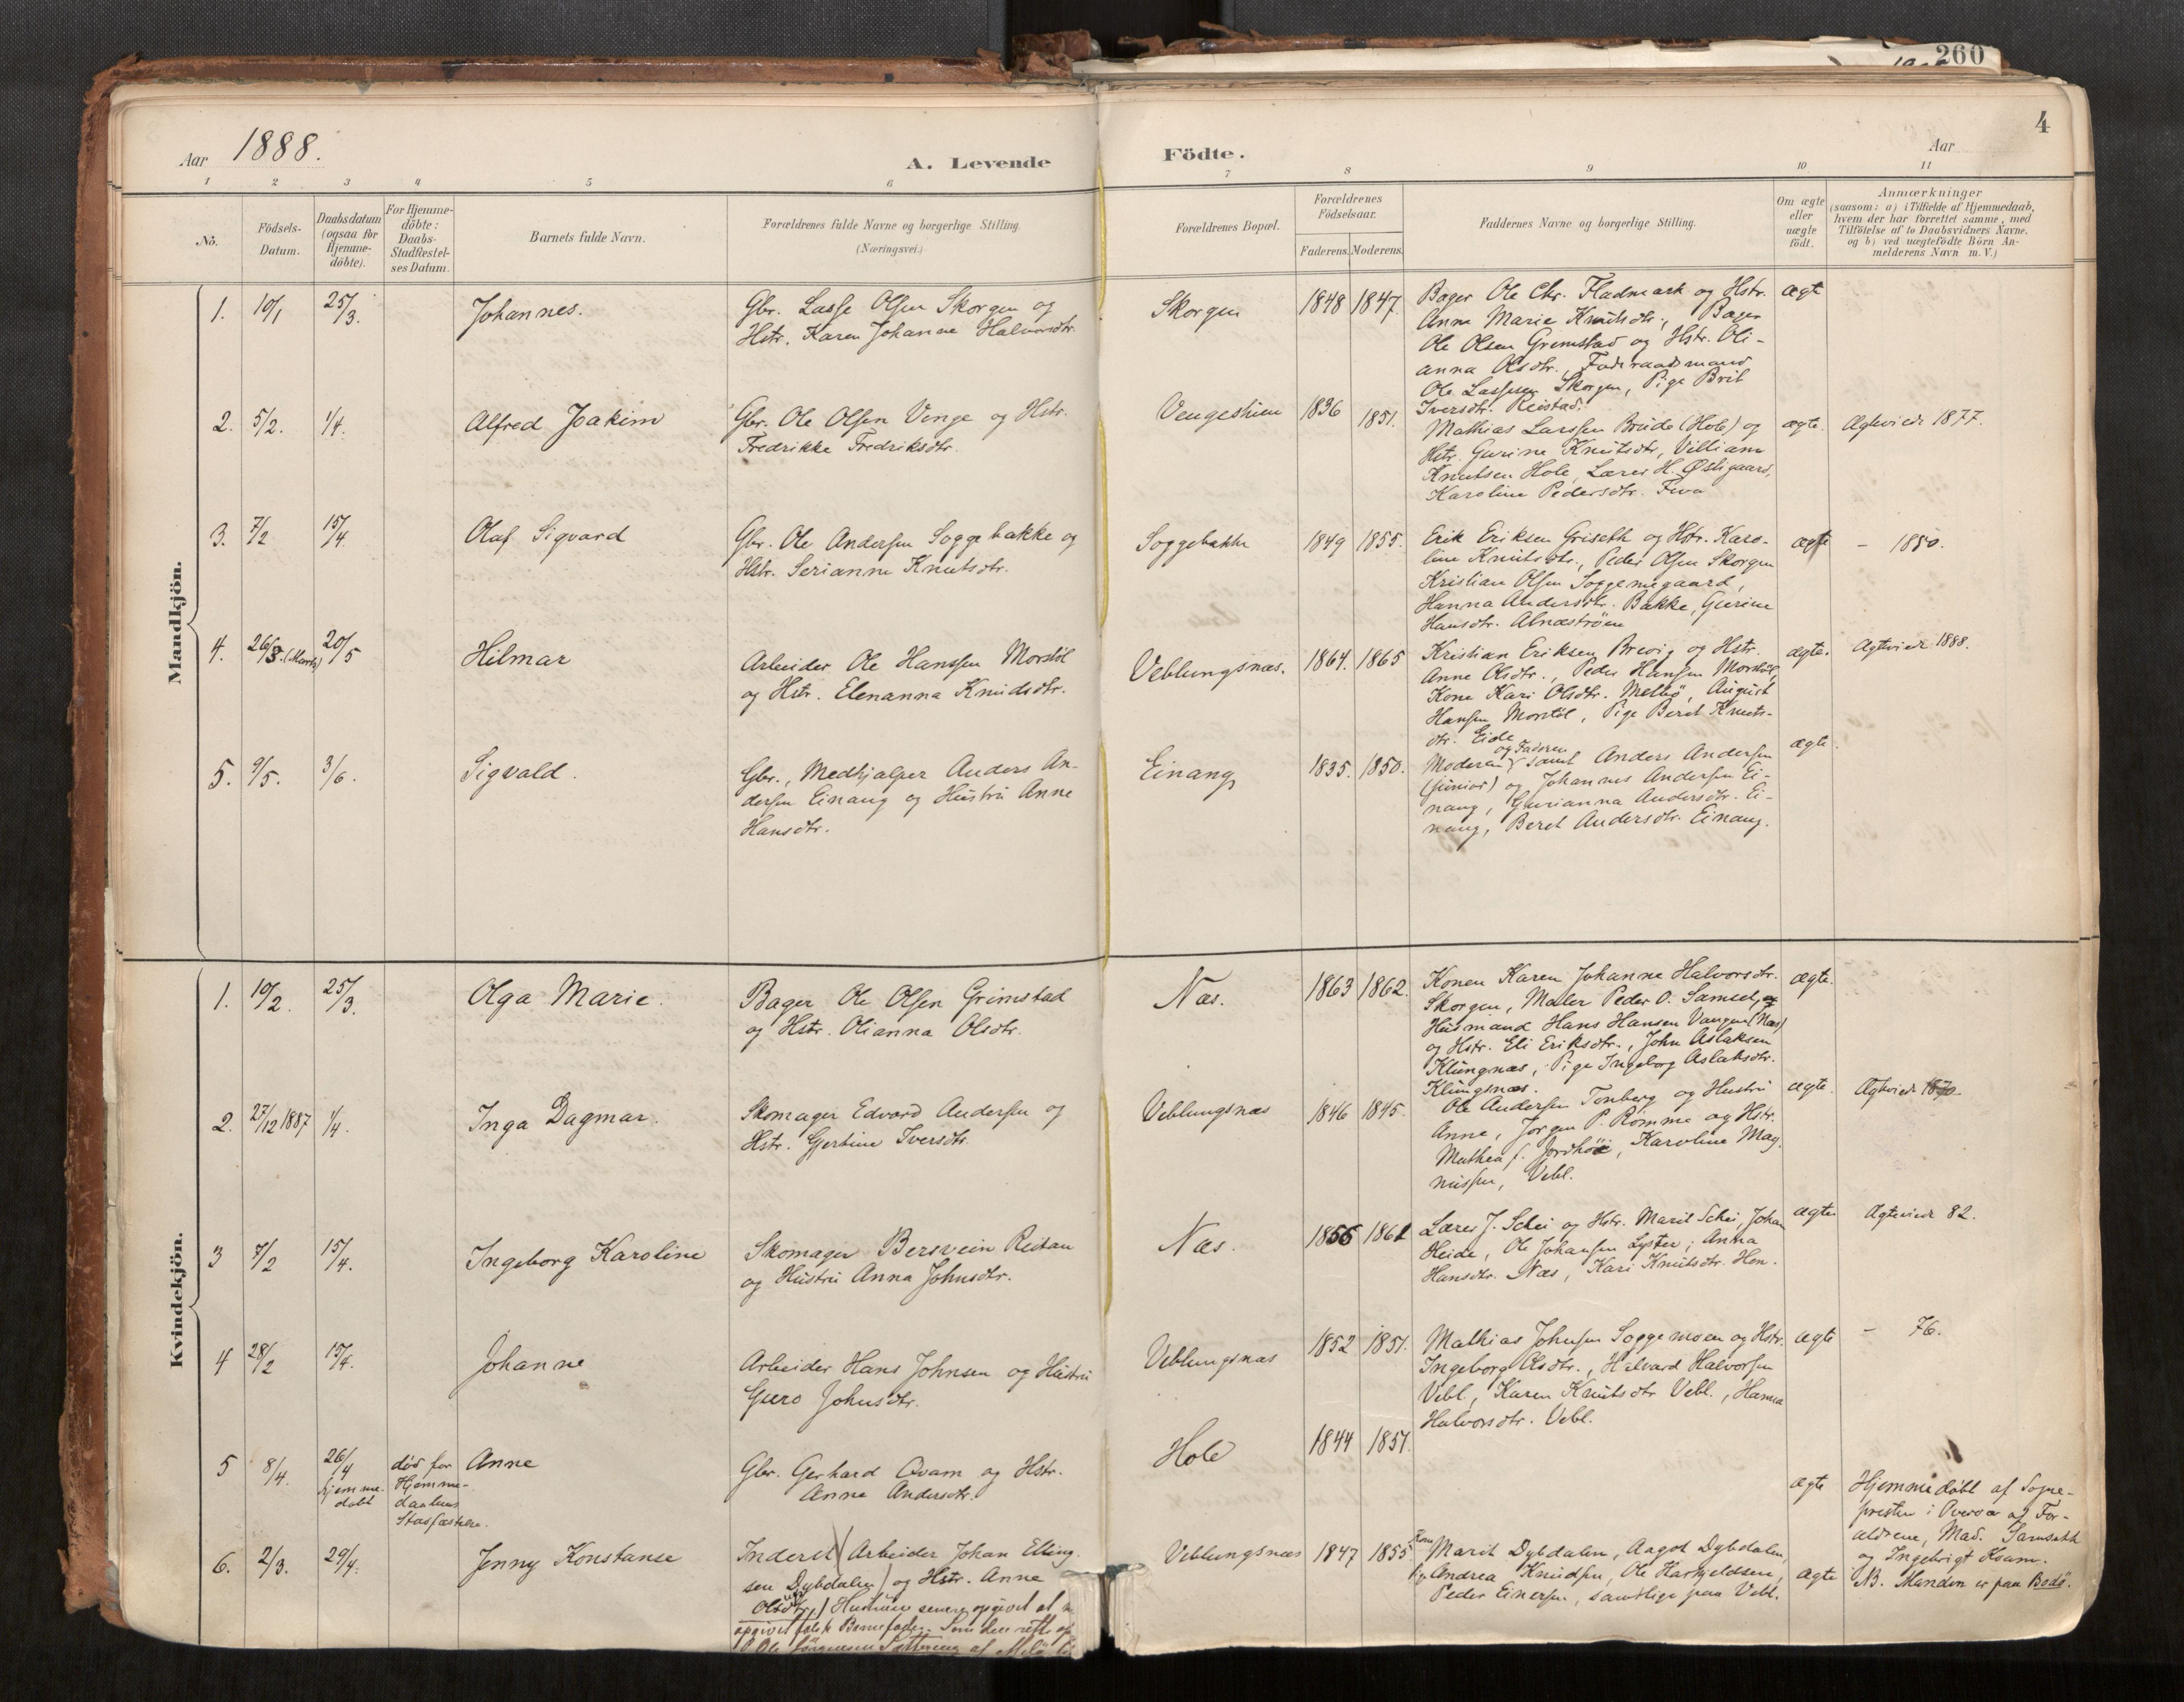 260
4
Aar 1888.
A. Levende
Födte.
Aar
1 2 3 4 5 6 7 8 9 10 11
No.
Födsels-
Datum.
Daabsdatum
(ogsaa for
Hjemme-
döbte).
For Hjemme-
döbte:
Daabs-
Stadfæstel-
ses Datum.
Barnets fulde Navn.
Forældrenes fulde Navne og borgerlige Stilling.
(Næringsvei.)
Forældrenes Bopæl.
Forældrenes
Födselsaar.
Faderens. Moderens.
Faddernes Navne og borgerlige Stilling.
Om ægte
eller
uægte
födt.
Anmærkninger
(saasom: a) i Tilfælde af Hjemmedaab,
hvem der har forrettet samme, med
Tilföielse af to Daabsvidners Navne.
og b) ved uægtefödte Börn An-
melderens Navn m. V.)
Mandkjön.
1. 10/1 25/3. Johannes.
Gbr. Lasse Olsen Skorgen og
Hstr. Karen Johanne Halvorsdtr.
Skorgen 1848 1847.
Bager Ole Chr. Fladmark og Hstr.
Anne Marie Knutsdtr., Bager
Ole Olsen Grimstad og Hstr. Oli-
anna Olsdtr., Föderaadsmand
Ole Lassesen Skorgen, Pige Brit
Iversdtr. Reistad.
ægte
2. 5/2. 1/4. Alfred Joakim
Gbr. Ole Olsen Venge og Hstr.
Fredrikke Fredriksdtr.
Vengeshien 1836 1851.
Mathias Larssen Bride (Hole) og
Hstr. Gurine Knutsdtr, Villiam
Knutsen Hole, Lærer H. Østigaard,
Karoline Pedersdtr. Fiva
ægte. Ægteviede 1877.
3. 7/2 15/4. Olaf Sigvard
Gbr. Ole Andersen Soggebakke og
Hstr. Serianne Knutsdtr.
Soggebakke 1849 1855.
Erik Eriksen Griseth og Hstr. Karo-
line Knutsdtr., Peder Olsen Skorgen
Kristian Olsen Soggemegaard,
Hanna Andersdtr. Bakke, Gurine
Hansdtr. Alnæströen
ægte – 1850.
4. 26/3. (Marts) 20/5 Hilmar
Arbeider Ole Hanssen Morstöl
og Hstr. Elenanna Knudsdtr.
Veblungsnæs. 1864. 1865
Kristian Eriksen Brevig og Hstr.
Anne Olsdtr., Peder Hansen Morstöl,
Kone Kari Olsdtr. Melbö, August
Hansen Morstöl, Pige Beret Knuts-
dtr. Eide
ægte. Ægteviede 1888.
5. 9/5. 3/6. Sigvald.
Gbr., Medhjælper Anders An-
dersen Einang og Hustru Anne
Hansdtr.
Einang 1835. 1850.
og Faderen
Moderen samt Anders Andersen
(junior) og Johannes Andersen Ei-
nang, Gurianna Andersdtr. Ei-
nang, Beret Andersdtr. Einang.
ægte.
Kvindekjön.
1. 10/2. 25/3. Olga Marie.
Bager Ole Olsen Grimstad
og Hstr. Olianna Olsdtr.
Næs. 1863 1862.
Konen Karen Johanne Halvorsdtr.
Skorgen, Maler Peder O. Samset, og
Husmand Hans Hansen Vangen (Næs)
og Hstr. Eli Eriksdtr., John Aslaksen
Klungnæs, Pige Ingeborg Aslaksdtr.
Klungnæs.
ægte.
2. 27/12 1887 1/4. Inga Dagmar.
Skomager Edvard Andersen og
Hstr. Gjertine Iversdtr.
Veblungsnæs 1846 1845.
Ole Andersen Tonberg og Hustru
Anne, Jörgen P. Romme og Hstr.
Mathea f. Jordhöi, Karoline Mag-
nussen, Vebl.
ægte. Ægteviede 1870.
3 7/2 15/4. Ingeborg Karoline
Skomager Bersvein Reitan
og Hustru Anna Johnsdtr.
Næs. 1855 1861
Lærer J. Schei og Hstr. Marit Schei, Johan
Heide, Ole Johansen Lyster; Anna
Hansdtr. Næs, Kari Knutsdtr. Hen.
ægte Ægteviede 82.
4 28/2 15/4. Johanne
Arbeider Hans Johnsen og Hustru
Guro Johnsdtr.
Veblungsnæs 1852 1851.
Mathias Johnsen Soggemoen og Hstr.
Ingeborg Olsdtr., Halvard Halvorsen
Vebl., Karen Knutsdtr Vebl., Hanna
Halvorsdtr. Vebl.
ægte – 76.
5 8/4. 26/4
hjemme-
döbt
död før
Hjemme-
daabens
Stadfæstelse.
Anne
Gbr. Gerhard Qvam og Hstr.
Anne Andersdtr.
Hole 1844 1851.
ægte
Hjemmedöbt af Sogne-
presten i Overvær af For-
ældrene, Mad. Samseth
og Ingebrigt Kvam.
6. 2/3. 29/4. Jenny Konstanse
Inderst Arbeider Johan Elling-
sen Dybdalen) og Hstr. Anne
Olsdtr, Hustruen senere opgivet at
opgivet falsk Barnefader. Som den rette
Veblungsnæs 1847 1855
Kone Marit Dybdalen, Aagot Dybdalen,
Pig Andrea Knudsen, Ole Harkjeldsen,
Peder Einersen, samtlige paa Vebl.
ægte NB. Manden er paa Bodö.